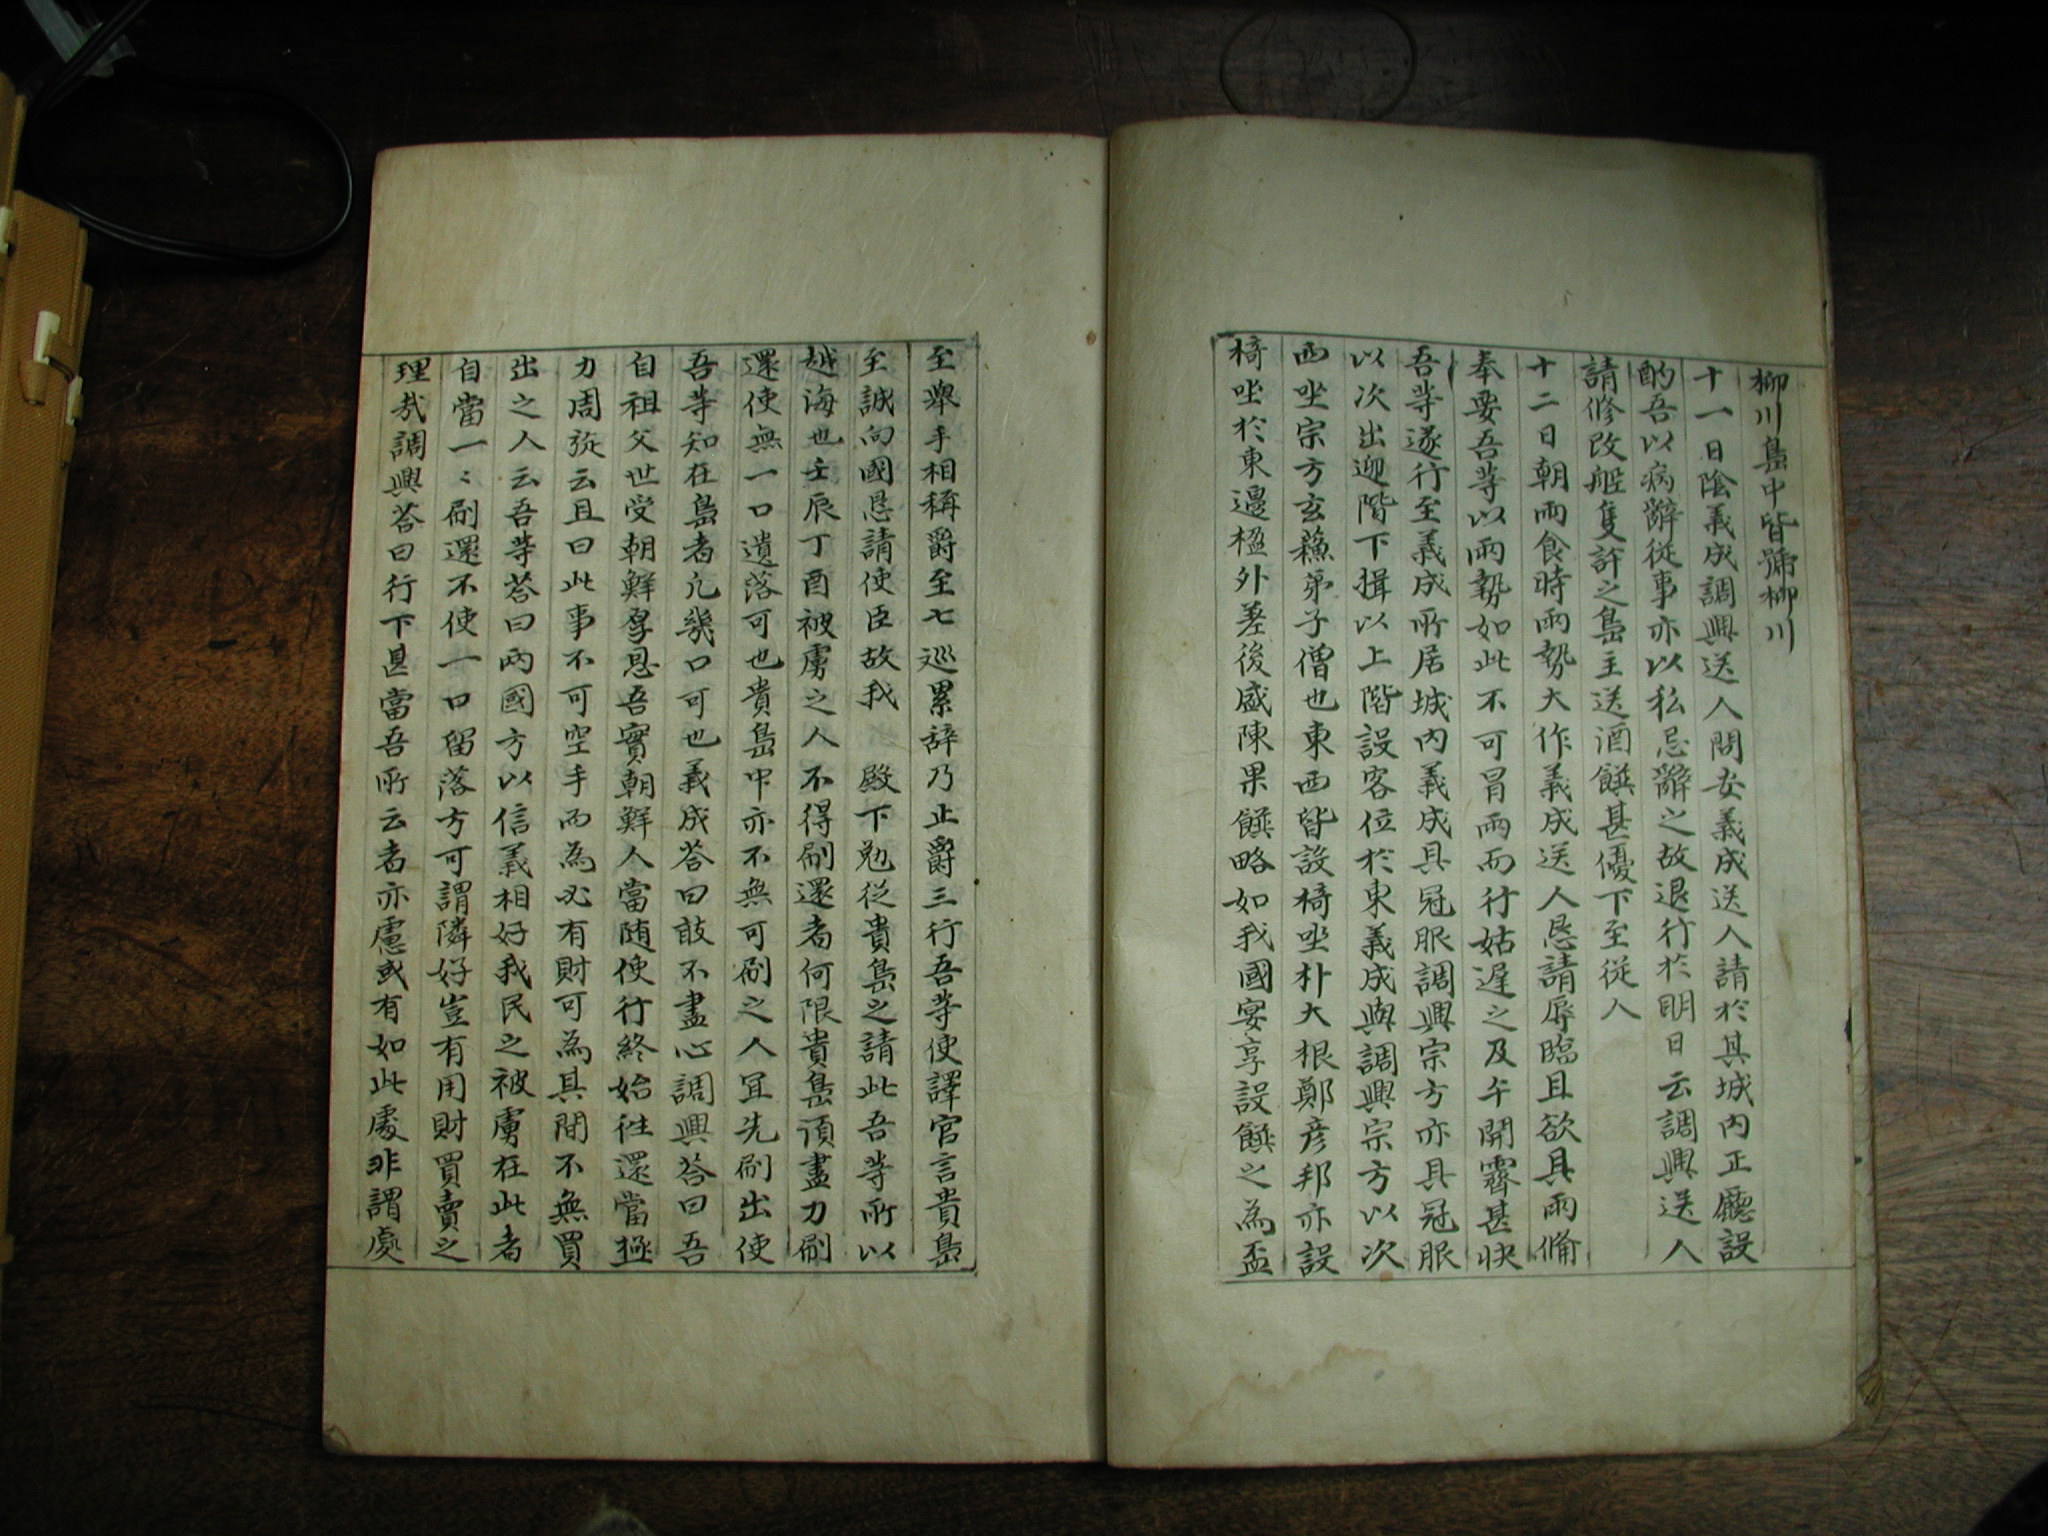 柳川島中皆號柳川
十一日陰義成調興送人問安義成送人請於其城內正廳設
酌吾以病辭從事亦以私忌辭之故退行於明日云調興送人
請修改船隻許之島主送酒饌甚優下至從人
十二日朝雨食時雨勢大作義成送人恳請辱臨且欲具雨俻
奉要吾等以雨勢如此不可冒雨而行姑遲之及午開霽甚快
吾等遂行至義成所居城內義成具冠服調興宗方亦具冠服
以次出迎階下揖以上階設客位於東義成與調興宗方以次
西坐宗方玄蘓弟子僧也東西皆設椅坐朴大根鄭彦邦亦設
椅坐於東邊楹外差後盛陳果饌略如我國宴享設饌之為盃
至舉手相稱爵至七巡累辞乃止爵三行吾等使譯官言貴島
至誠向國恳請使臣故我 殿下勉從貴島之請此吾等所以
越海也壬辰丁酉被虜之人不得刷還者何限貴島湏盡力刷
還使無一口遺落可也貴島中亦不無可刷之人冝先刷出使
吾等知在島者凢幾口可也義成答曰敢不盡心調興答曰吾
自祖父世受朝鮮厚恩吾實朝鮮人當随使行終始徃還當極
力周旋云且曰此事不可空手而為必有財可為其間不無買
出之人云吾等答曰兩國方以信義相好我民之被虜在此者
自當一〻刷還不使一口留落方可謂隣好豈有用財買賣之
理㢤調興答曰行下甚當吾所云者亦慮或有如此處非謂處